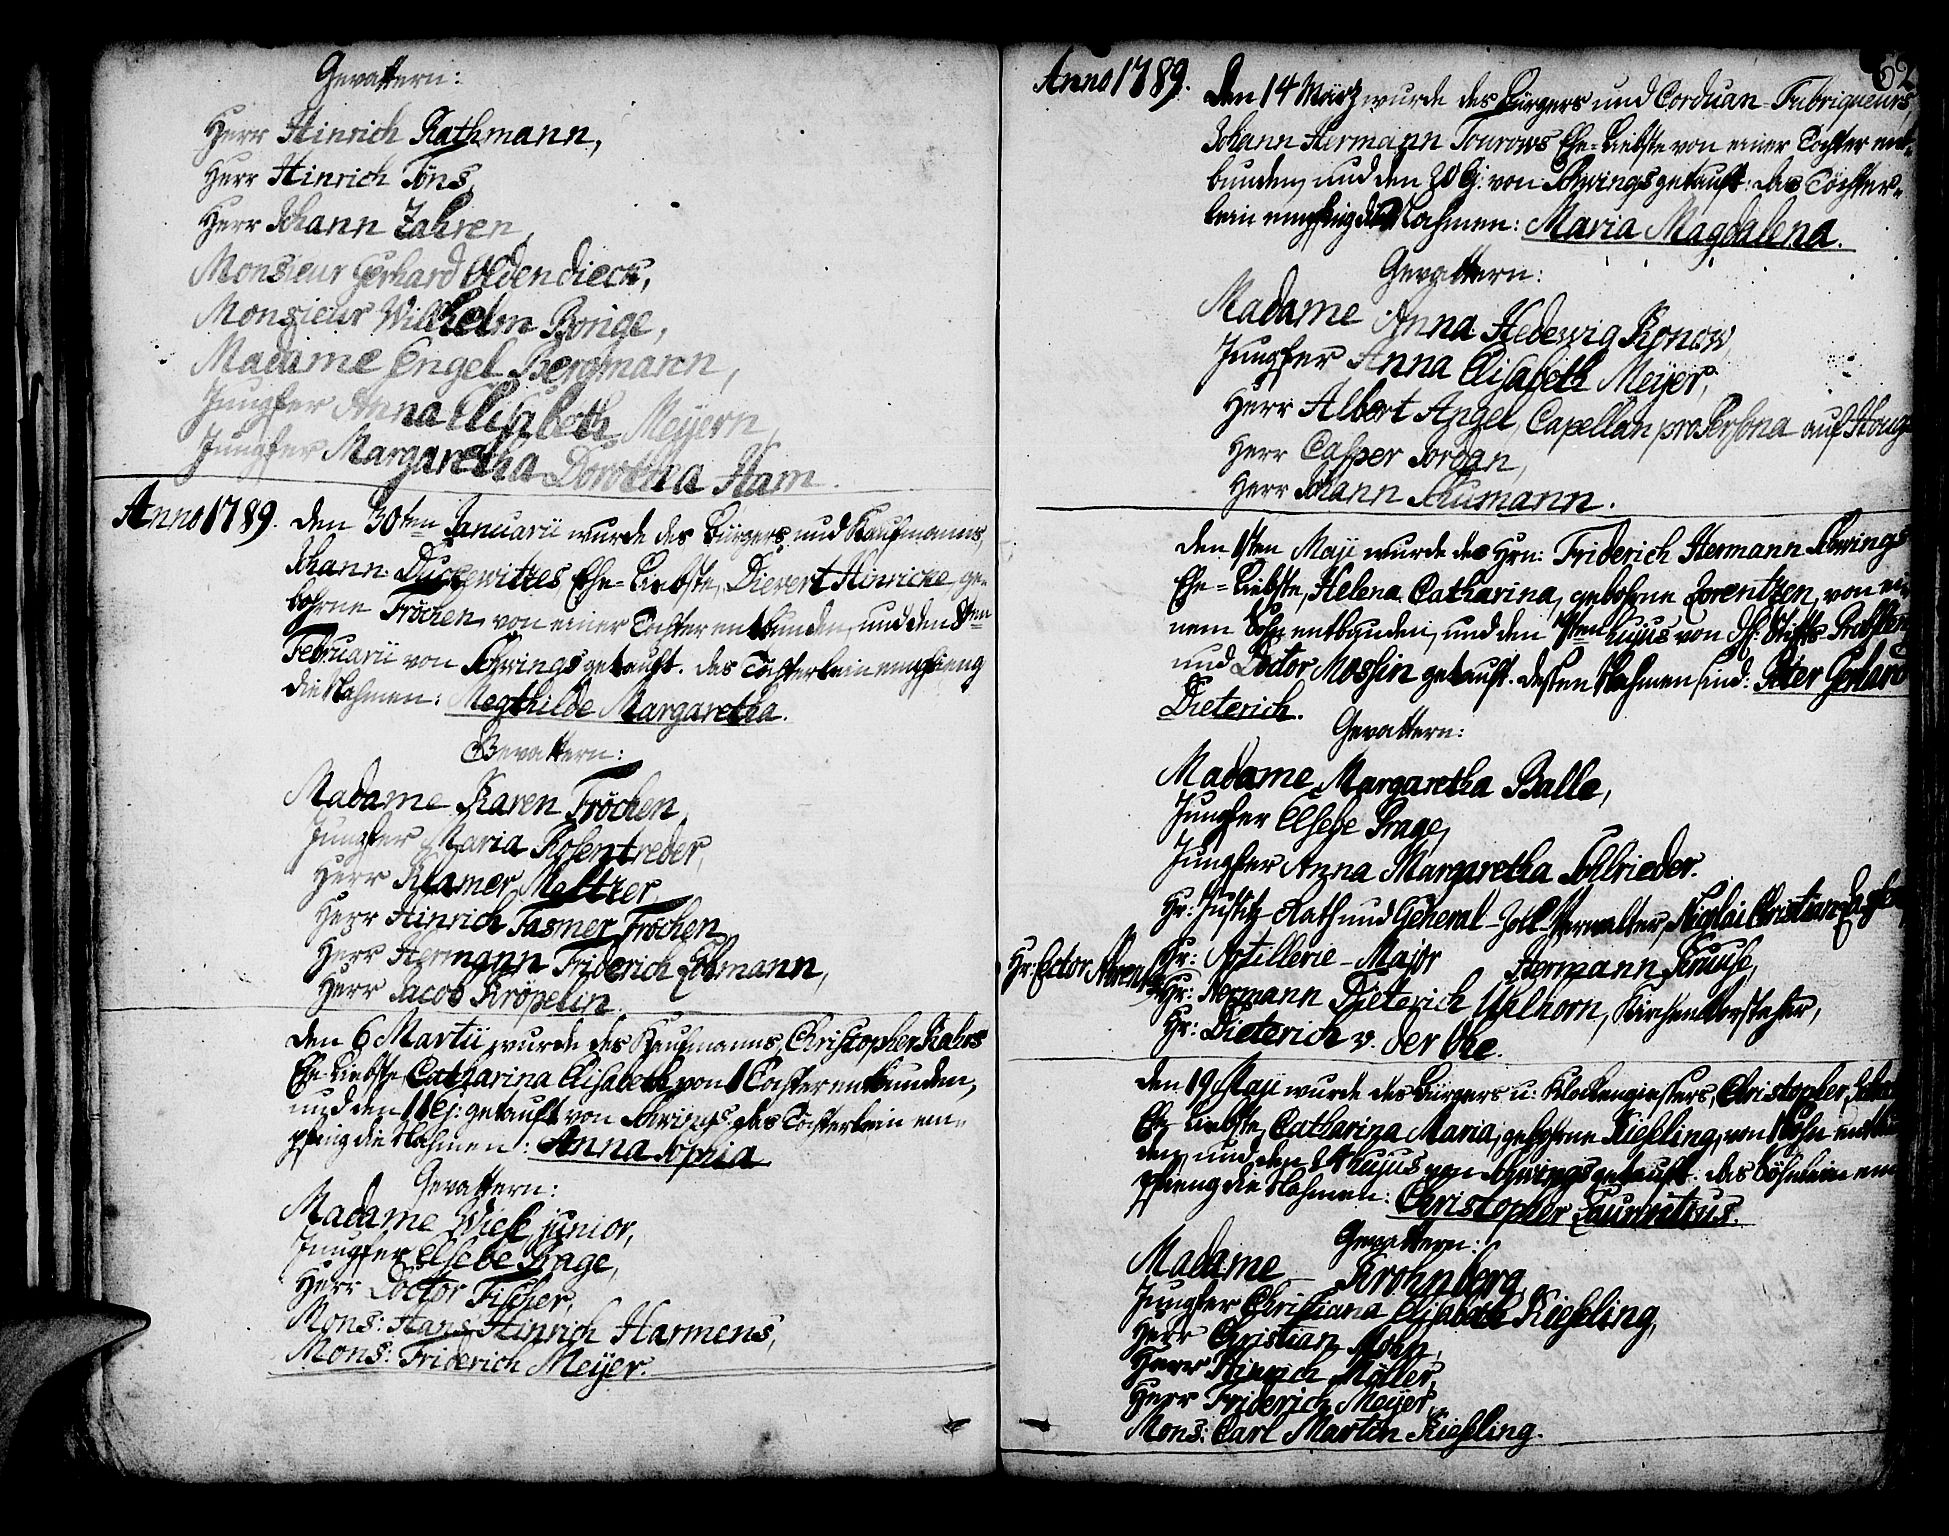 Gevattern:
Herr Hinrich Rathmann,
Herr Hinrich Töns,
Herr Johann Zahren,
Monsieur Gerhard Oldendieck,
Monsieur Wilhelm Bonge,
Madame Engel Bergmann,
Jungfer Anna Elisabeth Meyern,
Jungfer Margaretha Dorothea Ham.
Anno 1789. Den 30ten Januarii wurde des Bürgers und Kaufmanns,
Johann Duckewitzes Ehe-Liebste, Dievert Hinricke, ge-
bohrne Fröchen, von einer Tochter entbunden, und den
Februarii von Schwings getauft. Das Töchterlein empfieng
die Nahmen: Megthilde Margaretha.
Gevattern:
Madame Karen Fröchen,
Jungfer Maria Rosentreder,
Herr Kramer Maltzer,
Herr Hinrich Fasmer Fröchen,
Herr Hermann Friderich Lohmann,
Herr Jacob Kröpelin.
Den 6 Martii wurde des Kaufmanns, Christopher Rahrs
Ehe-Liebste, Catharina Elisabeth von 1 Tochter entbunden,
und den 11 Ej: getauft von Schwings. das Töchterlein em-
pfieng die Nahmen: Anna Sophia.
Gevattern:
Madame Wiese junior,
Jungfer Elsebe Prage,
Herr Doctor Fischer,
Mons: Hans Hinrich Harmens,
Mons: Friderich Meyer.
62
Anno 1789. Den 14 März wurde des Bürgers und Corduan-Fabriqueurs,
Johann Hermann Tourows Ehe-Liebste von einer Tochter ent-
bunden, und den 20 Ej: von Schwings getauft: das Töchter-
lein empfieng die Nahmen: Maria Magdalena.
Gevattern:
Madame Anna Hedewig Konow,
Jungfer Anna Elisabeth Meyer,
Herr Albert Angel, Capellan pro Persona auf
Herr Casper Jordan,
Herr Johann Schumann.
Den 1sten Maji wurde des Hrn: Friderich Hermann Schwings
Ehe-Liebste, Helena Catharina, gebohrne Lorentzen, von ei-
nem Sohn entbunden, und den 7ten hujus von Hr. Stifts Probsten
und Doctor Mossin getauft. dessen Nahmen sind: Peter Gerhard
Dieterich.
Gevattern:
Madame Margaretha Balle,
Jungfer Elsebe Prage,
Jungfer Anna Margaretha Schlrieder.
Hr: Justitz-Rath und General-Zoll-Verwalter, Nicolai Christian
Hr: Artillerie-Major Hermann Kruuse,
Hr: Hermann Dieterich Uhlhorn, Kirchen Vorsteher,
Hr: Dieterich v. der Ohe.
Den 19 Maji wurde des Bürgers u: Klockengiessers, Christopher
Ehe-Liebste, Catharina Maria, gebohrne Kiesling, von 1 Sohn entbun-
den, und den 24 hujus von Schwings getauft. das Söhnlein em-
pfieng die Nahmen: Christopher Laurentius.
Gevattern:
Madame Krohnberg,
Jungfer Christiana Elisabeth Kiesling,
Herr Christian Mohn,
Herr Hinrich Möller,
Herr Friderich Meyer,
Mons: Carl Martin Kiesling.